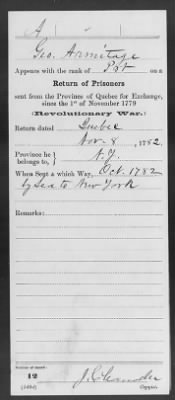 A
Geo. Armitage
Appears with the rank of Pvt on a
Return of Prisoners
sent from the Province of Quebec for Exchange,
since the 1st of November 1779
(Revolutionary War.)
Return dated Quebec
Nov. 8, 1782.
Province he belongs to, } N.Y.
When Sept & which Way, Oct. 1782
by Sea to New York
Remarks:
Number of record:
12
Copyist.